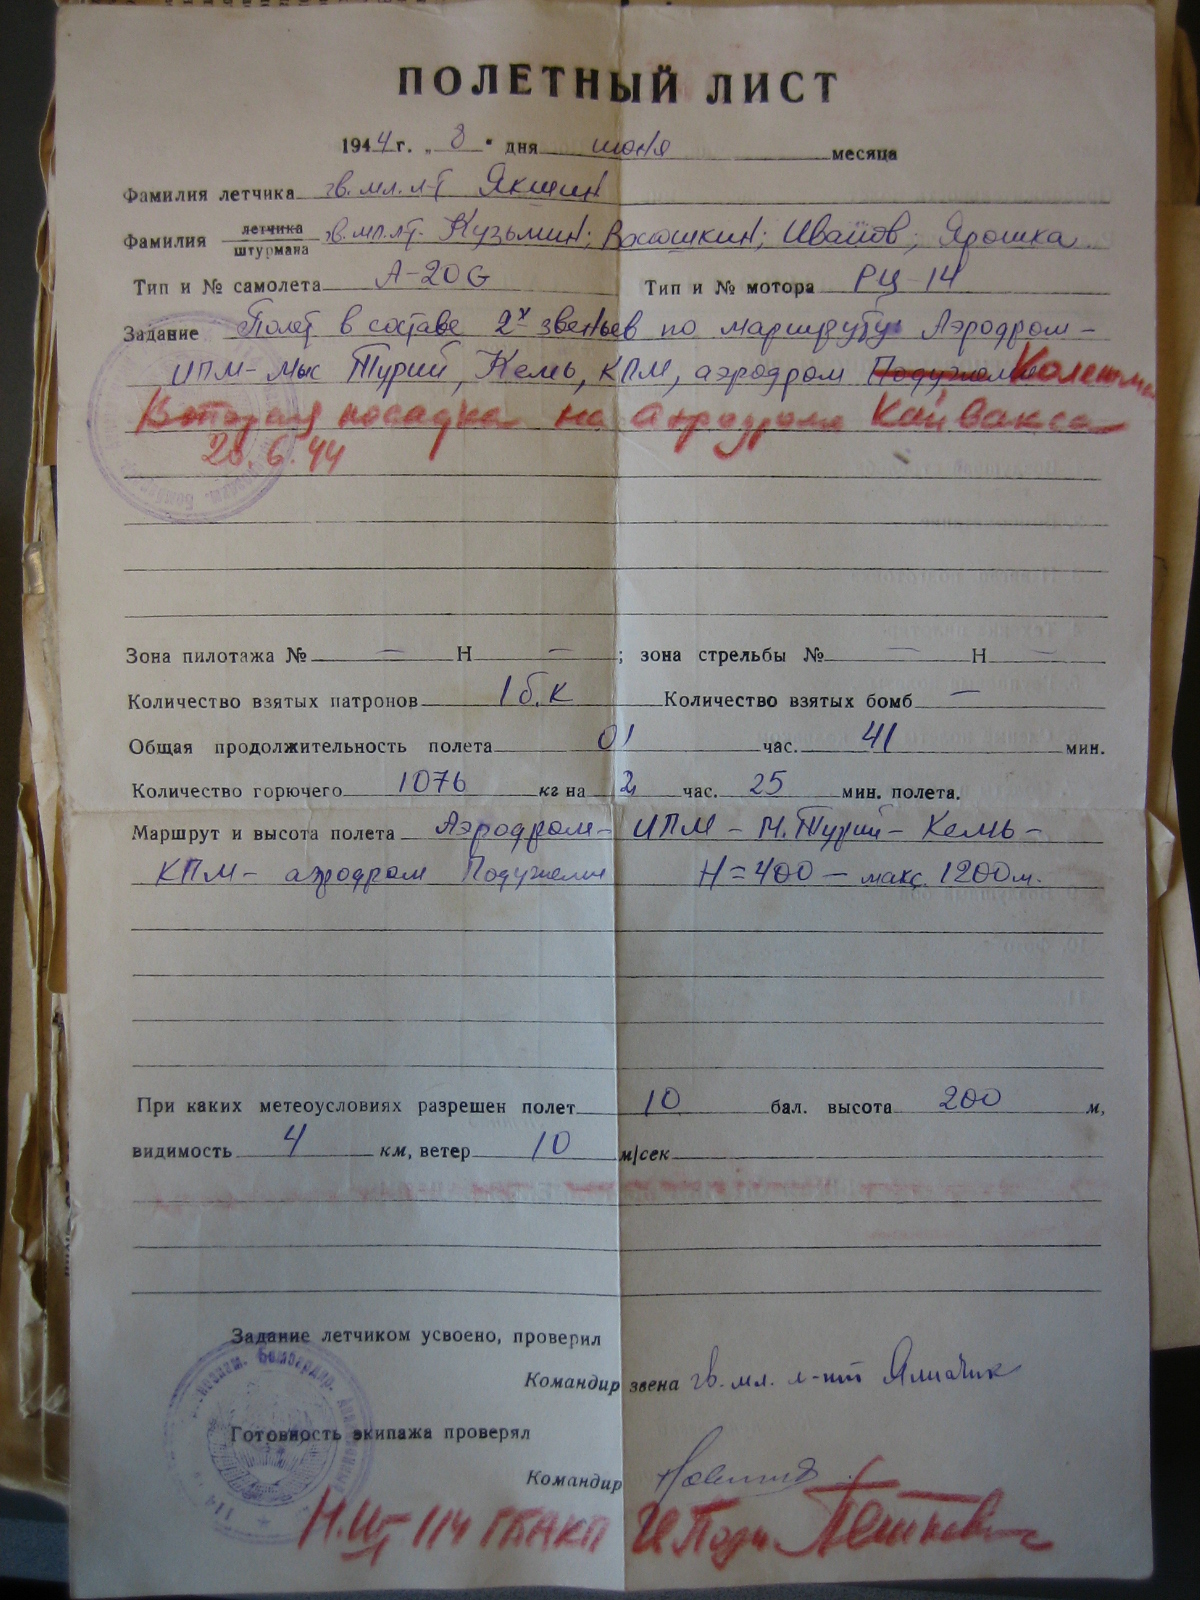 ПОЛЕТНЫЙ ЛИСТ
1944 г. „ 8 " дня июня месяца
Фамилия летчика гв. мл. л-т Якшин
Фамилия летчика штурмана гв. мл. лт. Кузьмин; Иванов; Ярошка
Тип и № самолета А-20G Тип и № мотора РЦ-14
Задание Полет в составе 2х звеньев по маршруту Аэродром –
ИПМ – мыс Турий, Кемь, КПМ, аэродром Подужемье
Вторая посадка на аэродроме Кайвакса
20.6.44
Зона пилотажа № — Н — ; зона стрельбы № — Н —
Количество взятых патронов 1 б.к Количество взятых бомб —
Общая продолжительность полета 01 час. 41 мин.
Количество горючего 1076 кг на 2 час. 25 мин. полета.
Маршрут и высота полета Аэродром – ИПМ – М. Турий – Кемь –
КПМ – аэродром Подужемье Н = 400 — макс. 1200 м.
При каких метеоусловиях разрешен полет 10 бал. высота 200 м,
видимость 4 км, ветер 10 м/сек
Задание летчиком усвоено, проверил
Командир звена гв. мл. л-нт
Готовность экипажа проверял
Командир
Н.Ш. 114 ГБАКП